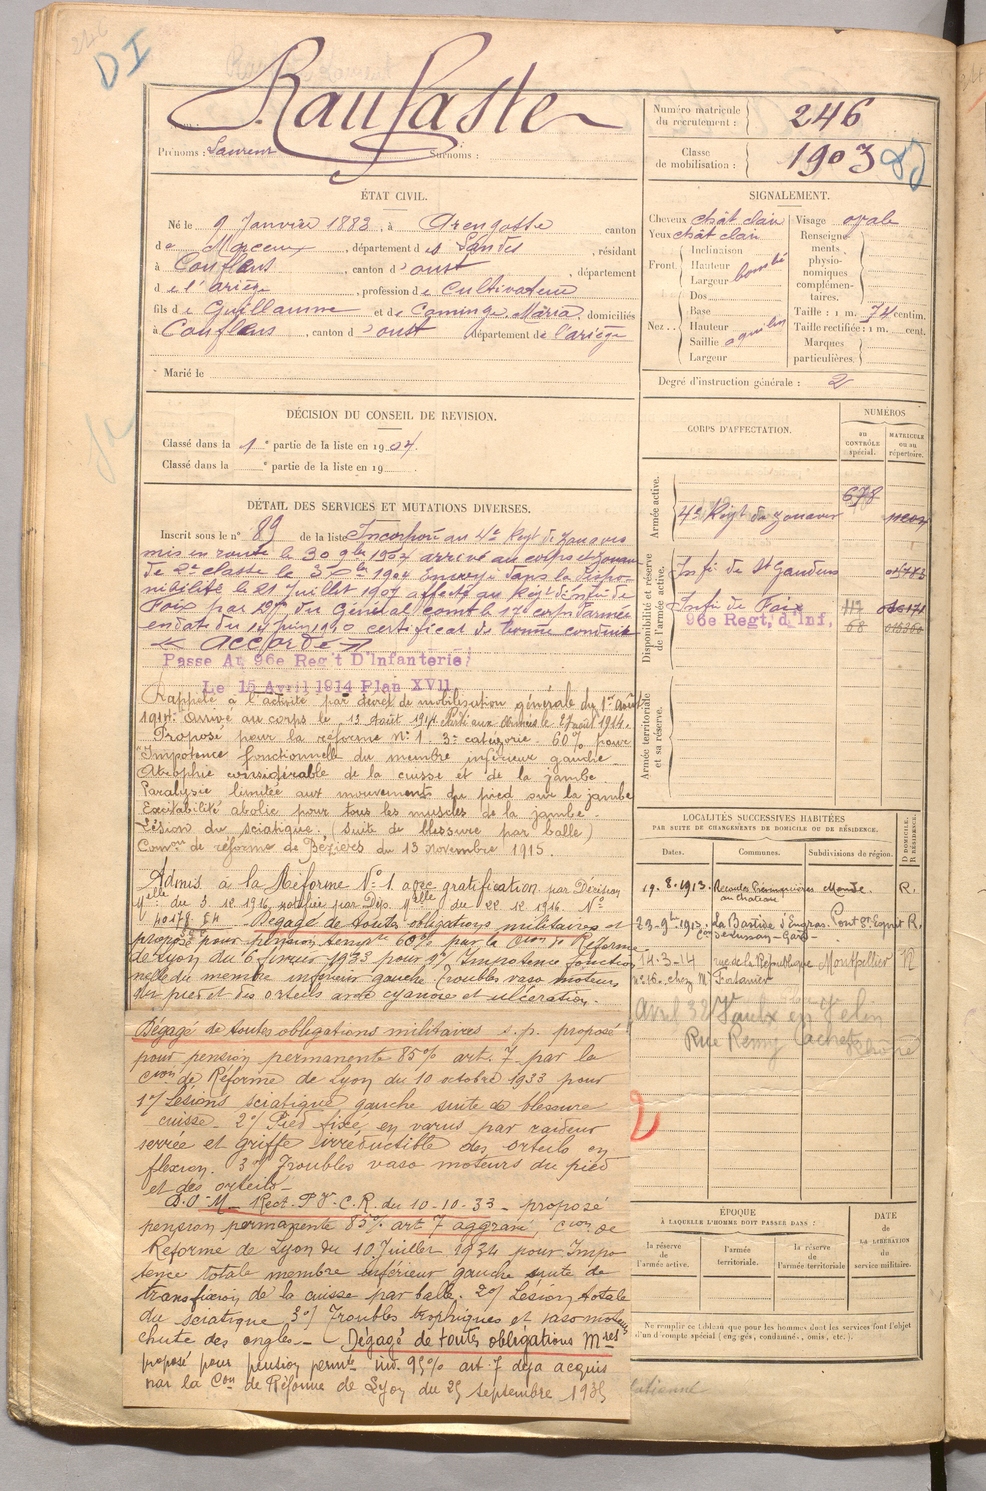 246
DI
Raufaste
Prénoms : Laurent Surnoms :
Numéro matricule du recrutement : 246
Classe de mobilisation : 1903
ÉTAT CIVIL.
Né le 9 Janvier 1883, à Arengosse canton
de Morcenx, département des Landes, résidant
à Couflens, canton d'oust, département
de l'ariège, profession de Cultivateur
fils de Guillaume et de Cominge, Maria, domiciliés
à Couflens, canton d'oust département de l'ariège
Marié le
DÉCISION DU CONSEIL DE REVISION.
Classé dans la 1e partie de la liste en 1904.
Classé dans la e partie de la liste en 19
DÉTAIL DES SERVICES ET MUTATIONS DIVERSES.
Inscrit sous le n° 89 de la liste Incorporé au 4e Régt de Zouaves
mis en route le 30 9bre 1904 arrivé au corps et Zouave
de 2e classe le 3 Xbre 1904 Envoyé dans la dispo-
nibilité le 21 Juillet 1907 affecté au Régt d'Infie de
Foix par Don du Général comt le 17e corps d'armée
en date du certificat de bonne conduite
« Accordé »
Passe Au 96e Reg't D'Infanterie
Le 15 Avril 1914 Plan XVII
Rappelé à l'activité par décret de mobilisation générale du 1er Août
1914. Arrivé au corps le 12 Août 1914. Parti aux Armées le 27 août 1914.
Proposé pour la réforme n° 1. 3e catégorie. 60% pour
"Impotence fonctionnelle du membre inférieur gauche
Atrophie considérable de la cuisse et de la jambe.
Paralysie limitée aux mouvements du pied sur la jambe
Excitabilité abolie pour tous les muscles de la jambe.
Lésion du sciatique. (suite de blessure par balle)
Comon de réforme de Béziers du 13 novembre 1915.
Admis à la Réforme N° 1 avec gratification par Décision
Mlle du 3.12.1916, notifiée par Dép. Mlle du 22.12.1916. N°
Dégagé de toutes obligations militaires et
proposé pour pension 60% par la Con de Réforme
de Lyon du 6 février 1933 pour 1°/ Impotence fonction
nelle du membre inférieur gauche Troubles vaso moteurs
du pied et des orteils avec cyanose et ulcération.
Dégagé de toutes obligations militaires s.p. proposé
pour pension permanente 85% art. 7 par la
Cion de Réforme de Lyon du 10 octobre 1933 pour
1°/ Lésions sciatique gauche suite de blessure
cuisse. 2°/ Pied fixé en varus par raideur
serrée et griffe irréductible des orteils en
flexion. 3°/ Troubles vaso moteurs du pied
et des orteils.
D.O.M. Rect. P.V.C.R. du 10-10-33 - proposé
pension permanente 85% art 7 aggravé, Cion de
Réforme de Lyon du 10 Juillet 1934 pour Impo
tence totale membre inférieur gauche suite de
transfixion de la cuisse par balle. 2°/ Lésion totale
du sciatique 3°/ Troubles trophiques et vaso moteurs
chute des ongles. Dégagé de toutes obligations Mres
proposé pour pension permte inv. 95% art. 7 déjà acquis
par la Con de Réforme de Lyon du 25 septembre 1935
SIGNALEMENT.
Cheveux chât clair
Yeux chât clair
Front. Inclinaison
Hauteur
Largeur bombé
Nez.. Dos
Base
Hauteur
Saillie aquilin
Largeur
Visage ovale
Renseignements physionomiques complémentaires.
Taille : 1 m. 74 centim.
Taille rectifiée : 1 m. cent.
Marques particulières.
Degré d'instruction générale : 2
CORPS D'AFFECTATION.
NUMÉROS
au CONTRÔLE spécial.
MATRICULE ou au répertoire.
Armée active.
4e Régt de Zouaves 678
Disponibilité et réserve de l'armée active.
Infie de St Gaudens
Infie de Foix 117
96e Regt, d'Inf, 68
Armée territoriale et sa réserve.
LOCALITÉS SUCCESSIVES HABITÉES
PAR SUITE DE CHANGEMENTS DE DOMICILE OU DE RÉSIDENCE.
Dates. Communes. Subdivisions de région. D DOMICILE. R RÉSIDENCE.
19.8.1913. au Château Mende. R.
23-9bre-1913. La Bastide d'Engras Pont St Esprit R.
Con de Lussan - Gard-
14-3-14 rue de la République Montpellier R
n° 16. chez M
Avril 32 Vaulx en Velin
Rhône
2
ÉPOQUE
À LAQUELLE L'HOMME DOIT PASSER DANS :
la réserve de l'armée active.
l'armée territoriale.
la réserve de l'armée territoriale
DATE de LA LIBÉRATION du service militaire.
Ne remplir ce tableau que pour les hommes dont les services font l'objet
d'un compte spécial (engagés, condamnés, omis, etc.).